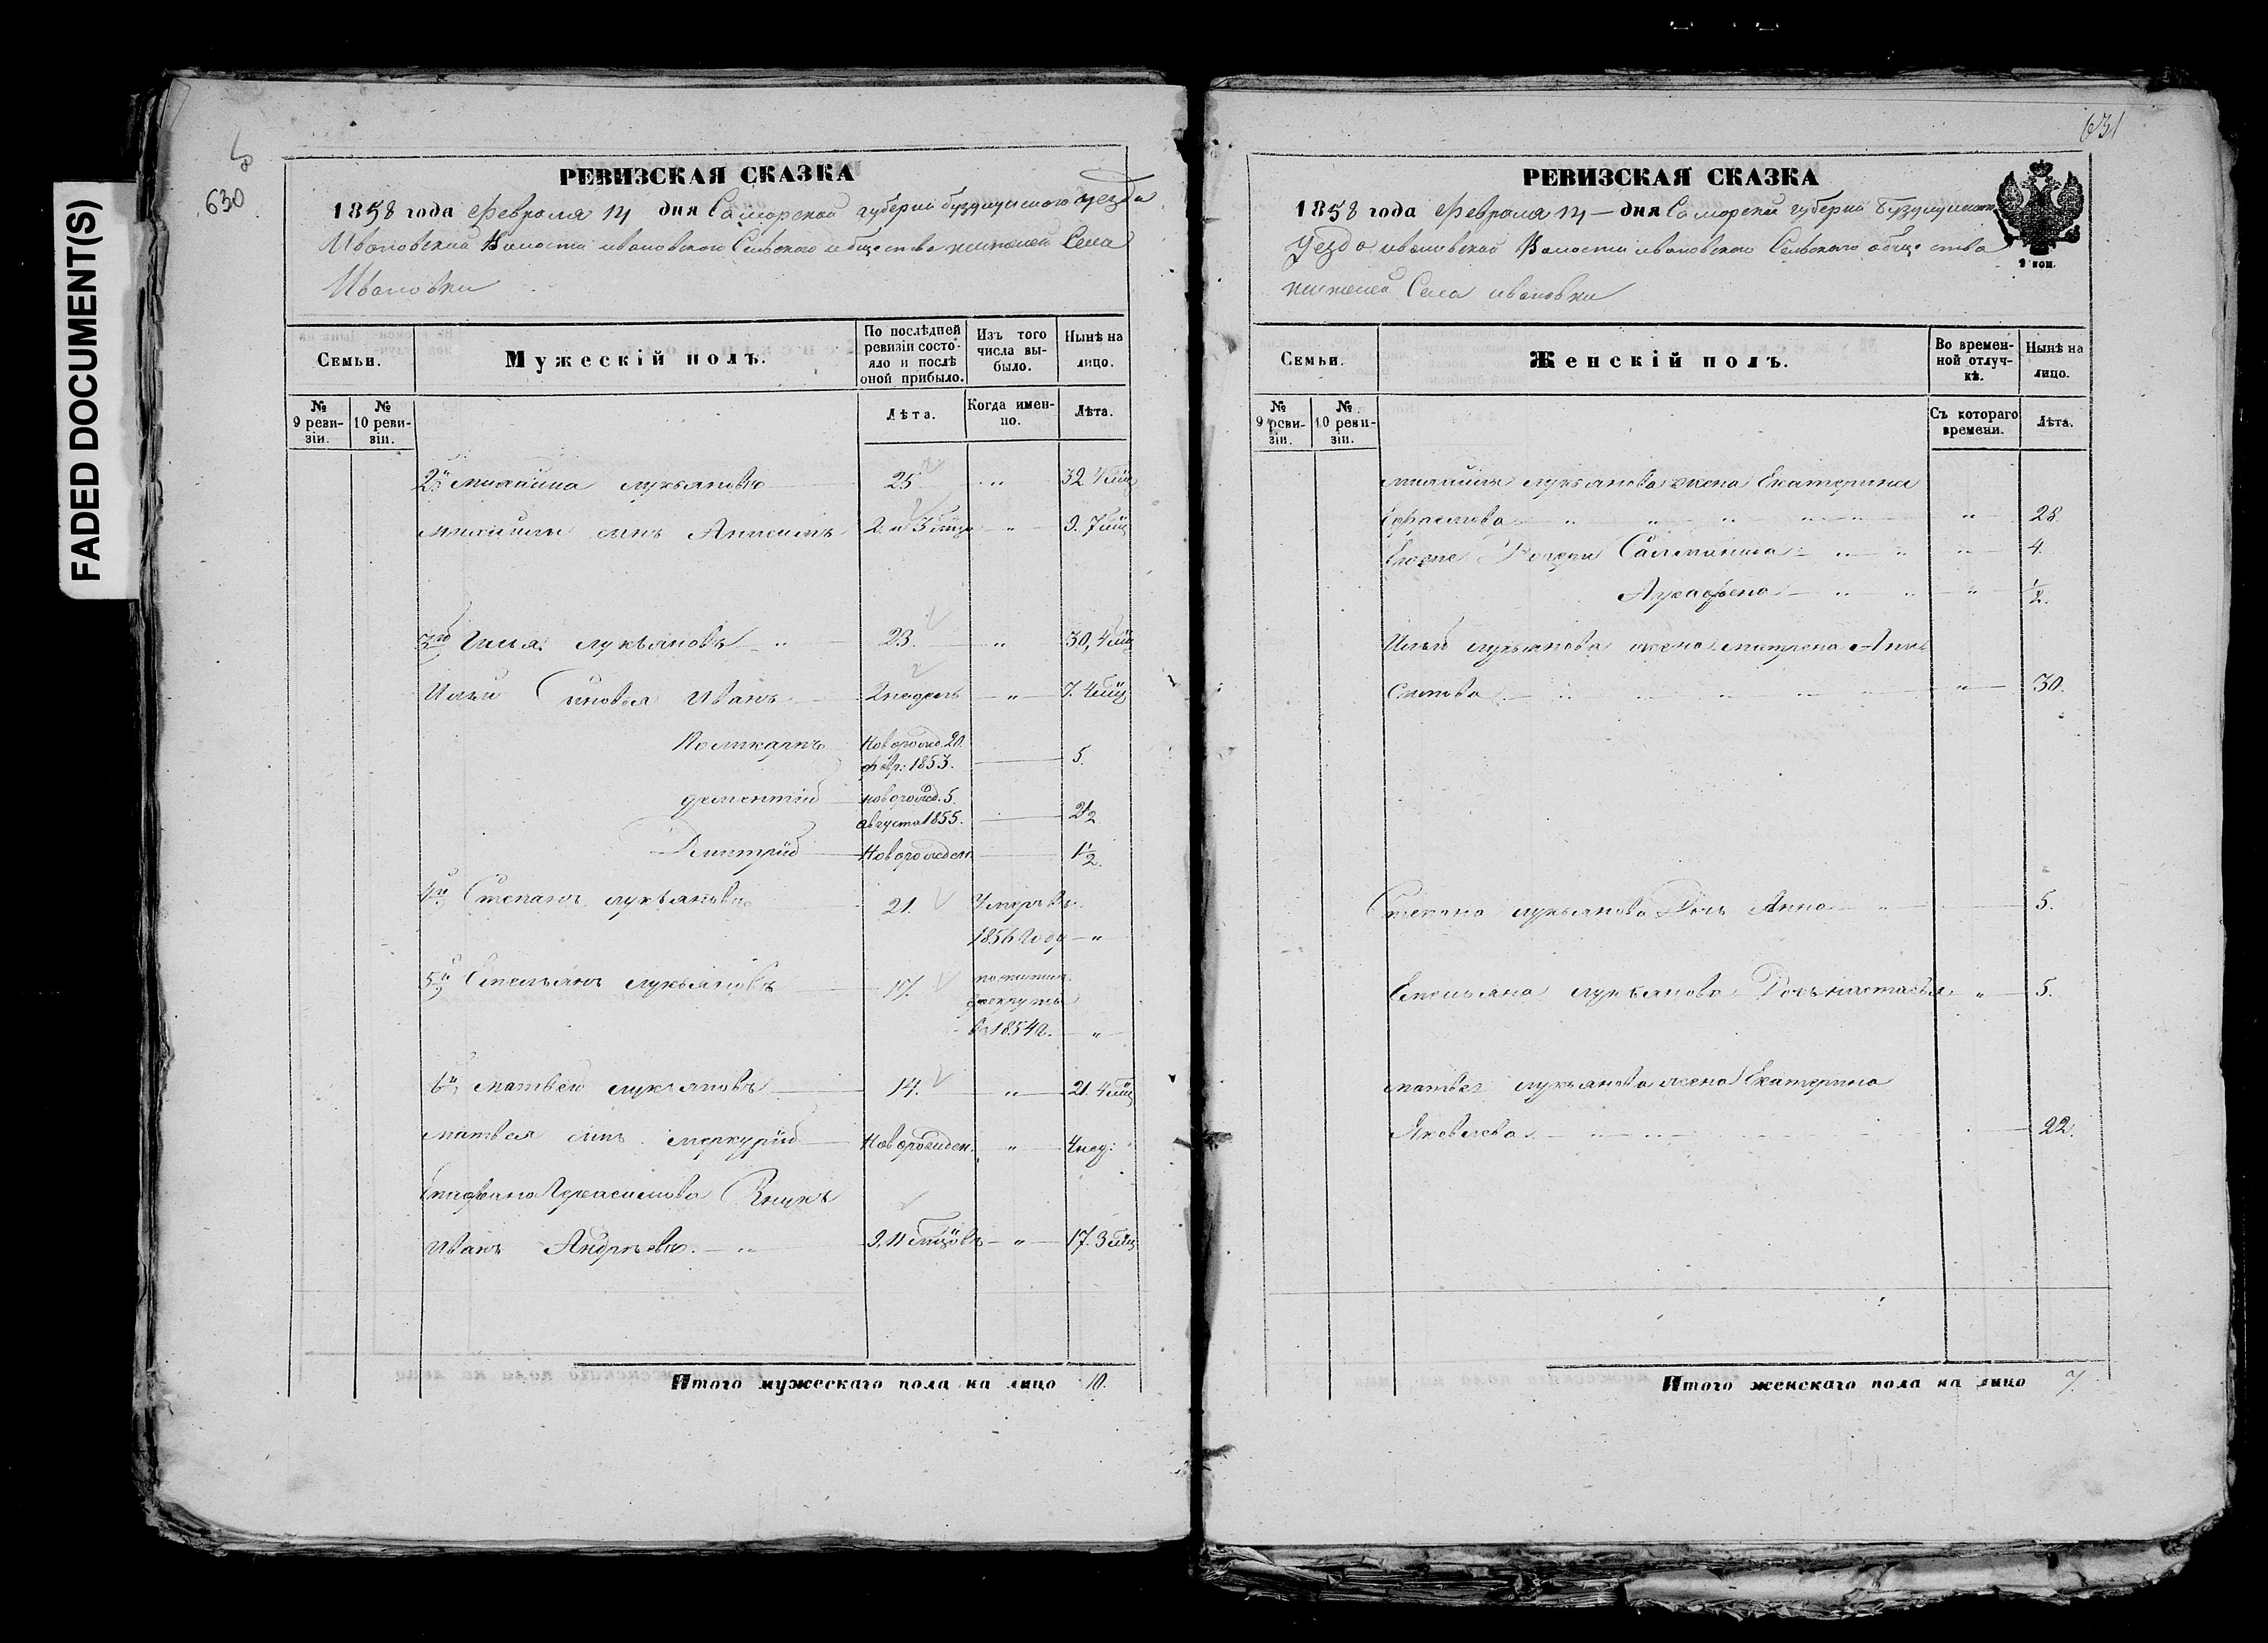 FADED DOCUMENT(S)
630
РЕВИЗСКАЯ СКАЗКА
1858 года Февраля 14 дня Самарской губерніи бузулукского уезда
Ивановской Волости ивановского Сельского общества жителей Села
Ивановки
Семьи.
Мужескій полъ.
По послѣдней ревизіи состояло и послѣ оной прибыло.
Изъ того числа выбыло.
Нынѣ на лицо.
№ 9 ревизіи.
№ 10 ревизіи.
Лѣта.
Когда именно.
Лѣта.
2й михайла лукьяновъ 25 " 32 4 мц
михайлы сынъ Анисимъ 2 и 3 мцъ " 9. 7 мц
3й Илья лукьяновъ " 23. " 30, 4 мц
Ильи Сыновья Иванъ 2 недель " 7. 4 мц
ПоликарпъНоворожд. 20. февр: 1853. 5.
дементий новорожд. 5. августа 1855. 2 1/2
Дмитрий Новорожден. 1/2.
4й Степанъ лукьяновъ 21. Умеръ въ
1856 году "
5й Емельянъ лукьяновъ 17.
рекруты
въ 1854 г. "
6й матвей лукьяновъ 14. " 21. 4 мц
матвея сынъ меркурий Новорожден. " 4 нед:
Епифана Герасимова Внукъ
Иванъ Андреевъ. " 9, 11 мцовъ " 17. 3 мц
Итого мужескаго пола на лицо 10.
631
РЕВИЗСКАЯ СКАЗКА
1858 года Февраля 14 дня Самарской губерніи бузулукского
уезда ивановской Волости ивановского Сельского общества
жителей Села ивановки
Семьи.
Женскій полъ.
Во временной отлучкѣ.
Нынѣ на лицо.
№ 9 ревизіи.
№ 10 ревизіи.
Съ котораго времени.
Лѣта.
михайлы лукьянова жена Екатерина
Ефремова " 28.
Дочери " 4.
Аграфена " 1/2.
Ильи лукьянова жена матрена Ани
симова " 30.
Степана лукьянова Дочь Анна " 5.
Емельяна лукьянова Дочь настасья " 5.
матвея лукьянова жена Екатерина
Яковлева 22.
Итого женскаго пола на лицо 7.